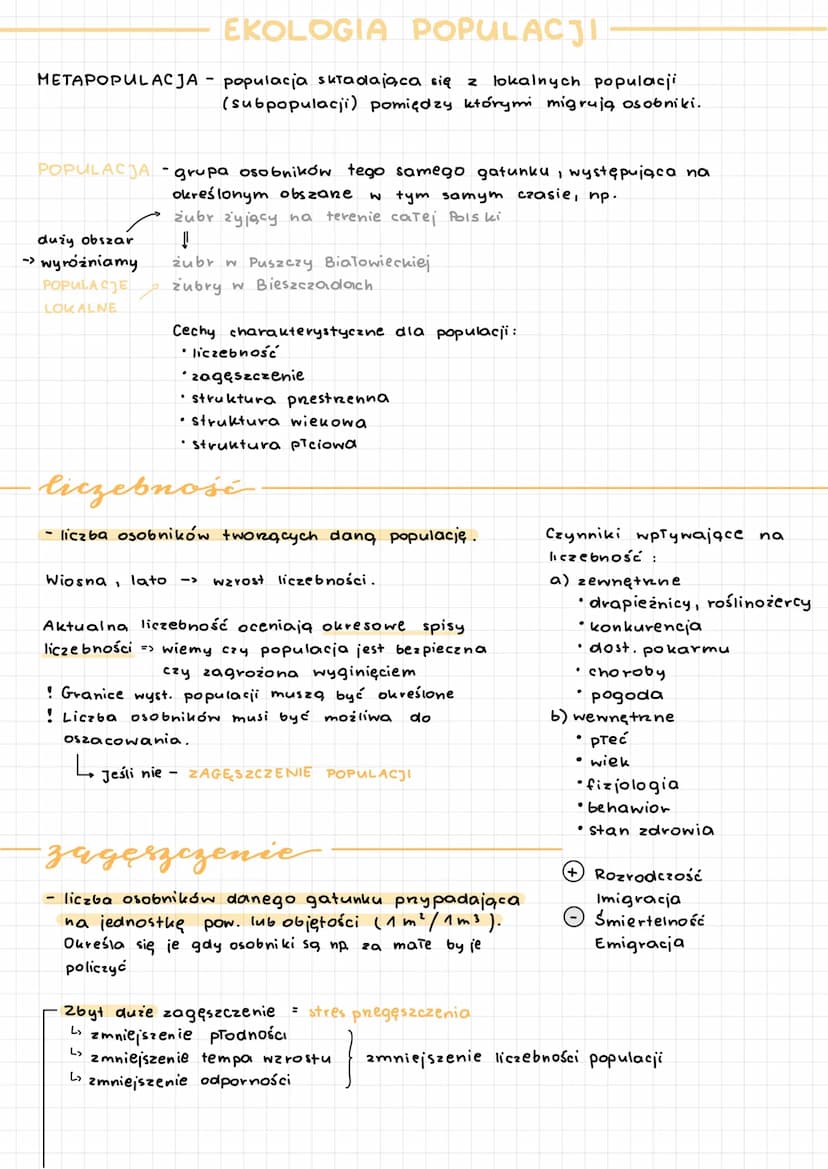 EKOLOGIA POPULACJI
METAPOPULACJA - populacja składająca się z lokalnych populacji
(subpopulacji) pomiędzy którymi migrują osobniki.
POPULACJA - grupa osobników tego samego gatunku, występująca na
określonym obszarze w tym samym czasie, np.
żubr żyjący na terenie całej Polski
duży obszar ⇓
-> wyróżniamy żubr w Puszczy Białowieckiej
POPULACJE żubry w Bieszczadach
LOKALNE
Cechy charakterystyczne dla populacji:
• liczebność
• zagęszczenie
• struktura przestrzenna
• struktura wiekowa
• struktura płciowa
liczebność
- liczba osobników tworzących daną populację.
Wiosna, lato -> wzrost liczebności.
Aktualną liczebność oceniają okresowe spisy
liczebności => wiemy czy populacja jest bezpieczna
czy zagrożona wyginięciem
! Granice wyst. populacji muszą być określone
! Liczba osobników musi być możliwa do
oszacowania.
↳ Jeśli nie - ZAGĘSZCZENIE POPULACJI
Czynniki wpływające na
liczebność:
a) zewnętrzne
• drapieżnicy, roślinożercy
• konkurencja
• dost. pokarmu
• choroby
• pogoda
b) wewnętrzne
• płeć
• wiek
• fizjologia
• behawior
• stan zdrowia
+ Rozrodczość
Imigracja
- Śmiertelność
Emigracja
zagęszczenie
- liczba osobników danego gatunku przypadająca
na jednostkę pow. lub objętości (1m²/1m³).
Określa się je gdy osobniki są np. za małe by je
policzyć
Zbyt duże zagęszczenie = stres przegęszczenia
↳ zmniejszenie płodności
↳ zmniejszenie tempa wzrostu } zmniejszenie liczebności populacji
↳ zmniejszenie odporności